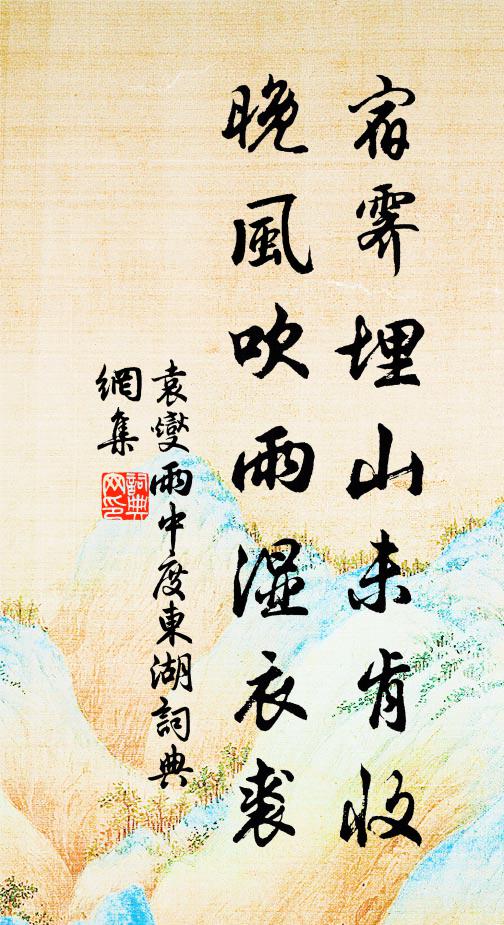 宿雾埋山未肯收
晚風吹雨湿衣裘
袁燮雨中度東湖詞典
網集
詞典
网印